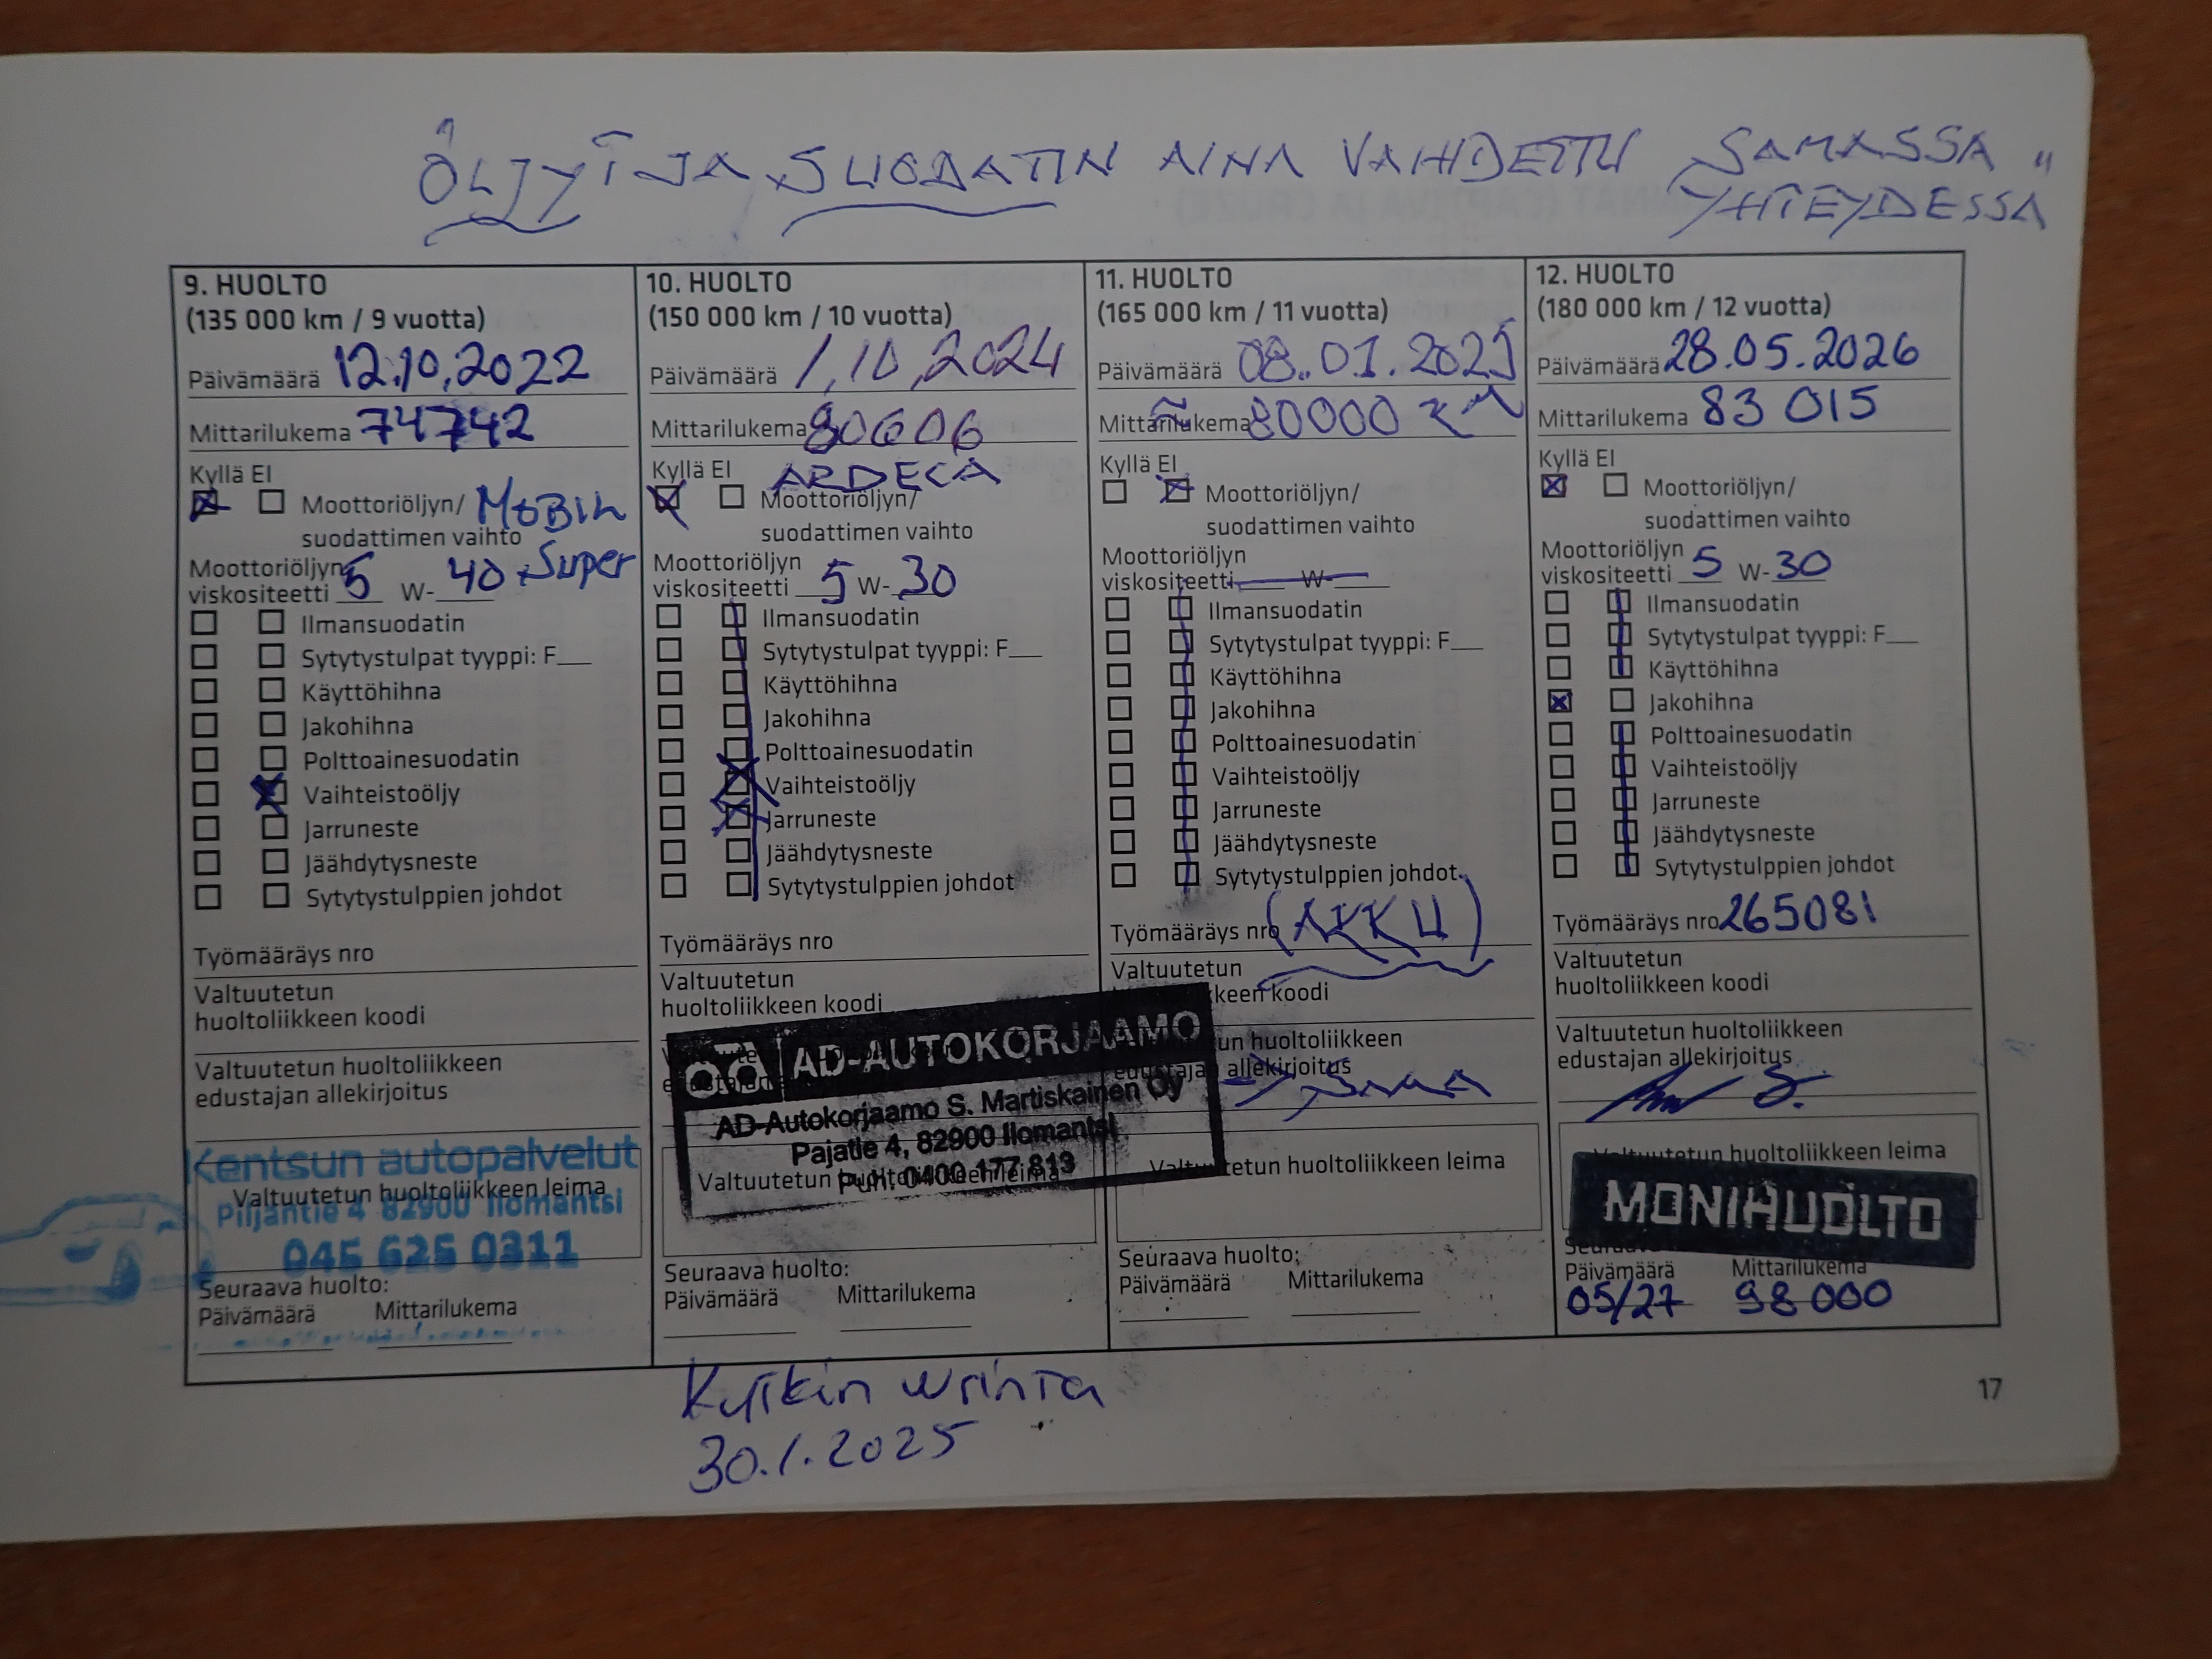 ÖLJYT JA SUODATIN AINA VAIHDETTU SAMASSA
YHTEYDESSÄ
9. HUOLTO
(135 000 km / 9 vuotta)
Päivämäärä 12.10.2022
Mittarilukema 74742
Kyllä EI
Moottoriöljyn/ MOBIL
suodattimen vaihto
Super
Moottoriöljyn
viskositeetti 5 W-40
Ilmansuodatin
Sytytystulpat tyyppi: F__
Käyttöhihna
Jakohihna
Polttoainesuodatin
Vaihteistoöljy
Jarruneste
Jäähdytysneste
Sytytystulppien johdot
Työmääräys nro
Valtuutetun
huoltoliikkeen koodi
Valtuutetun huoltoliikkeen
edustajan allekirjoitus
Kentsun autopalvelut
Valtuutetun huoltoliikkeen leima
Piljantie 4 82900 Ilomantsi
045 625 0311
Seuraava huolto:
Päivämäärä Mittarilukema
10. HUOLTO
(150 000 km / 10 vuotta)
Päivämäärä 1.10.2024
Mittarilukema 80606
Kyllä EI ARDECA
Moottoriöljyn/
suodattimen vaihto
Moottoriöljyn
viskositeetti 5 W-30
Ilmansuodatin
Sytytystulpat tyyppi: F__
Käyttöhihna
Jakohihna
Polttoainesuodatin
Vaihteistoöljy
Jarruneste
Jäähdytysneste
Sytytystulppien johdot
Työmääräys nro
Valtuutetun
huoltoliikkeen koodi
AD-AUTOKORJAAMO
AD-Autokorjaamo S. Martiskainen Oy
Pajatie 4, 82900 Ilomantsi
Puh. 0400 177 813
Valtuutetun huoltoliikkeen leima
Seuraava huolto:
Päivämäärä Mittarilukema
Kytkin uusinta
30.1.2025
11. HUOLTO
(165 000 km / 11 vuotta)
Päivämäärä 08.01.2025
Mittarilukema ≈ 80000 km
Kyllä EI
Moottoriöljyn/
suodattimen vaihto
Moottoriöljyn
viskositeetti __ W-__
Ilmansuodatin
Sytytystulpat tyyppi: F__
Käyttöhihna
Jakohihna
Polttoainesuodatin
Vaihteistoöljy
Jarruneste
Jäähdytysneste
Sytytystulppien johdot
Työmääräys nro (AKKU)
Valtuutetun
huoltoliikkeen koodi
Valtuutetun huoltoliikkeen
edustajan allekirjoitus
Valtuutetun huoltoliikkeen leima
Seuraava huolto:
Päivämäärä Mittarilukema
12. HUOLTO
(180 000 km / 12 vuotta)
Päivämäärä 28.05.2026
Mittarilukema 83 015
Kyllä EI
Moottoriöljyn/
suodattimen vaihto
Moottoriöljyn
viskositeetti 5 W-30
Ilmansuodatin
Sytytystulpat tyyppi: F__
Käyttöhihna
Jakohihna
Polttoainesuodatin
Vaihteistoöljy
Jarruneste
Jäähdytysneste
Sytytystulppien johdot
Työmääräys nro 265081
Valtuutetun
huoltoliikkeen koodi
Valtuutetun huoltoliikkeen
edustajan allekirjoitus
Valtuutetun huoltoliikkeen leima
MONIHUOLTO
Päivämäärä Mittarilukema
05/27 98 000
17